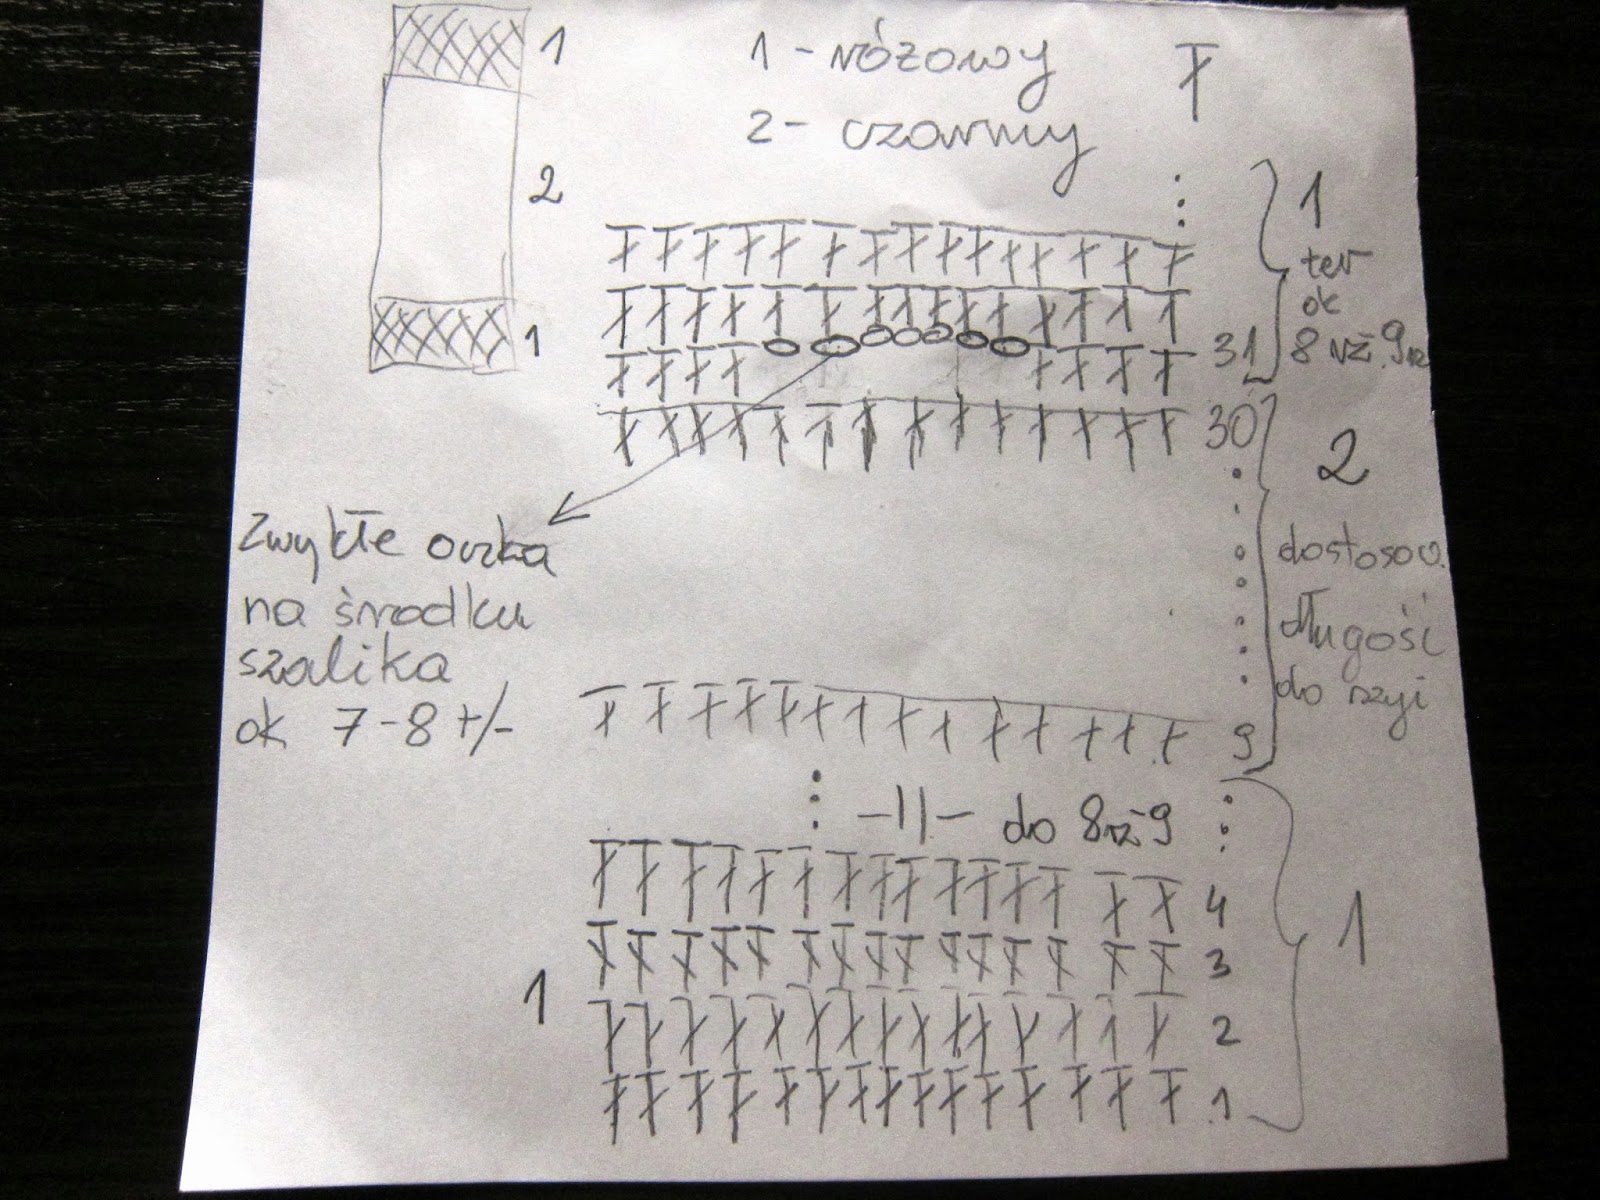 1
1 - różowy
2 - czarny
2
1
1
też
ok
8 rz. 9rz
31
30
2
dostosow.
długość
do szyi
Zwykłe oczka
na środku
szalika
ok 7-8 +/-
9
-||- do 8rz 9
4
3
2
1
1
1